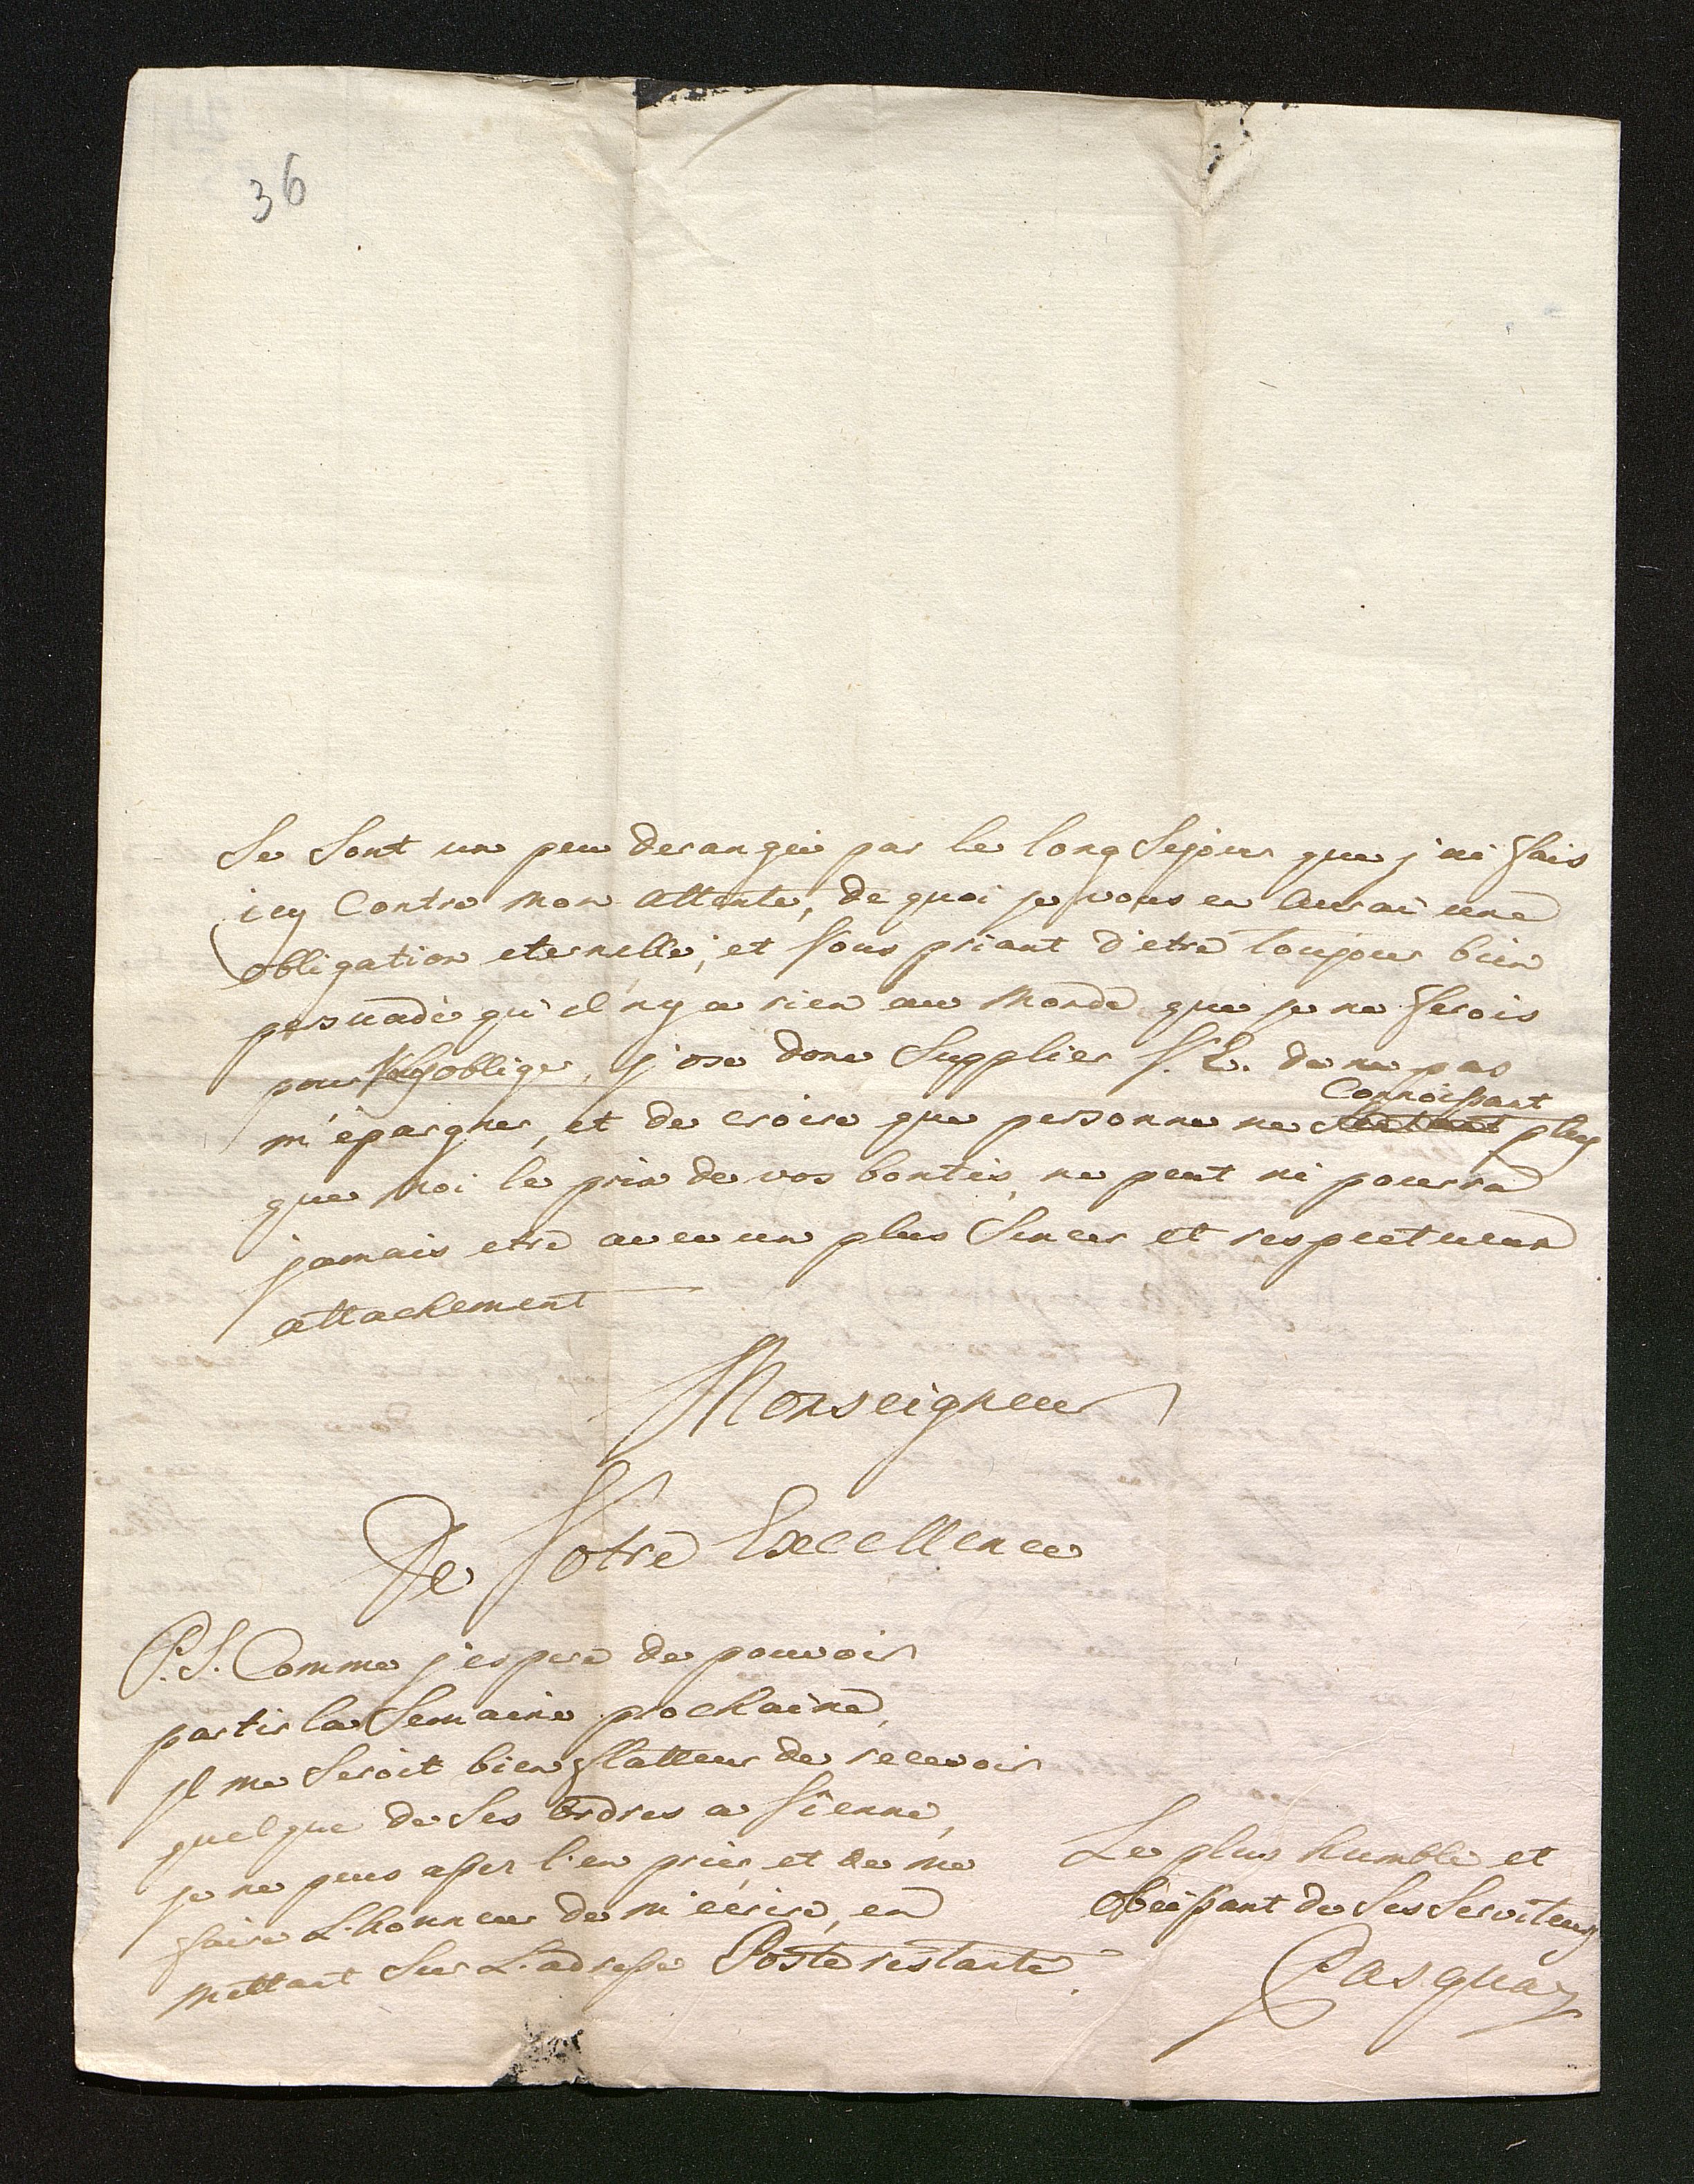 36
Se Sont un peu derangée par le long Sejour que j'ai fais
icy Contre mon attente, de quoi je vous en aurai une
obligation eternelle, et Vous priant d'etre toujour bien
persuadé qu'il n'y a rien au Monde que je ne ferois
pour l'obliger, j'ose donc Supplier V. E. de ne pas
m'épargner, et de croire que personne ne Connoissant plus
que Moi le prix de vos bontés, ne peut ni pourra
jamais etre avec un plus Sincer et respectueux
attachement
Monseigneur
De Votre Excellence
P.S. Comme j'espere de pouvoir
partir la Semaine prochaine,
il me Seroit bien flatteur de recevoir
quelque de Ses Ordres a Vienne,
je ne peus assez l'en prier, et de me
faire L'honneur de m'écrire, en
mettant Sur L'adresse Poste restante.
Le plus humble et
obeissant de Ses Serviteurs
Pasquay